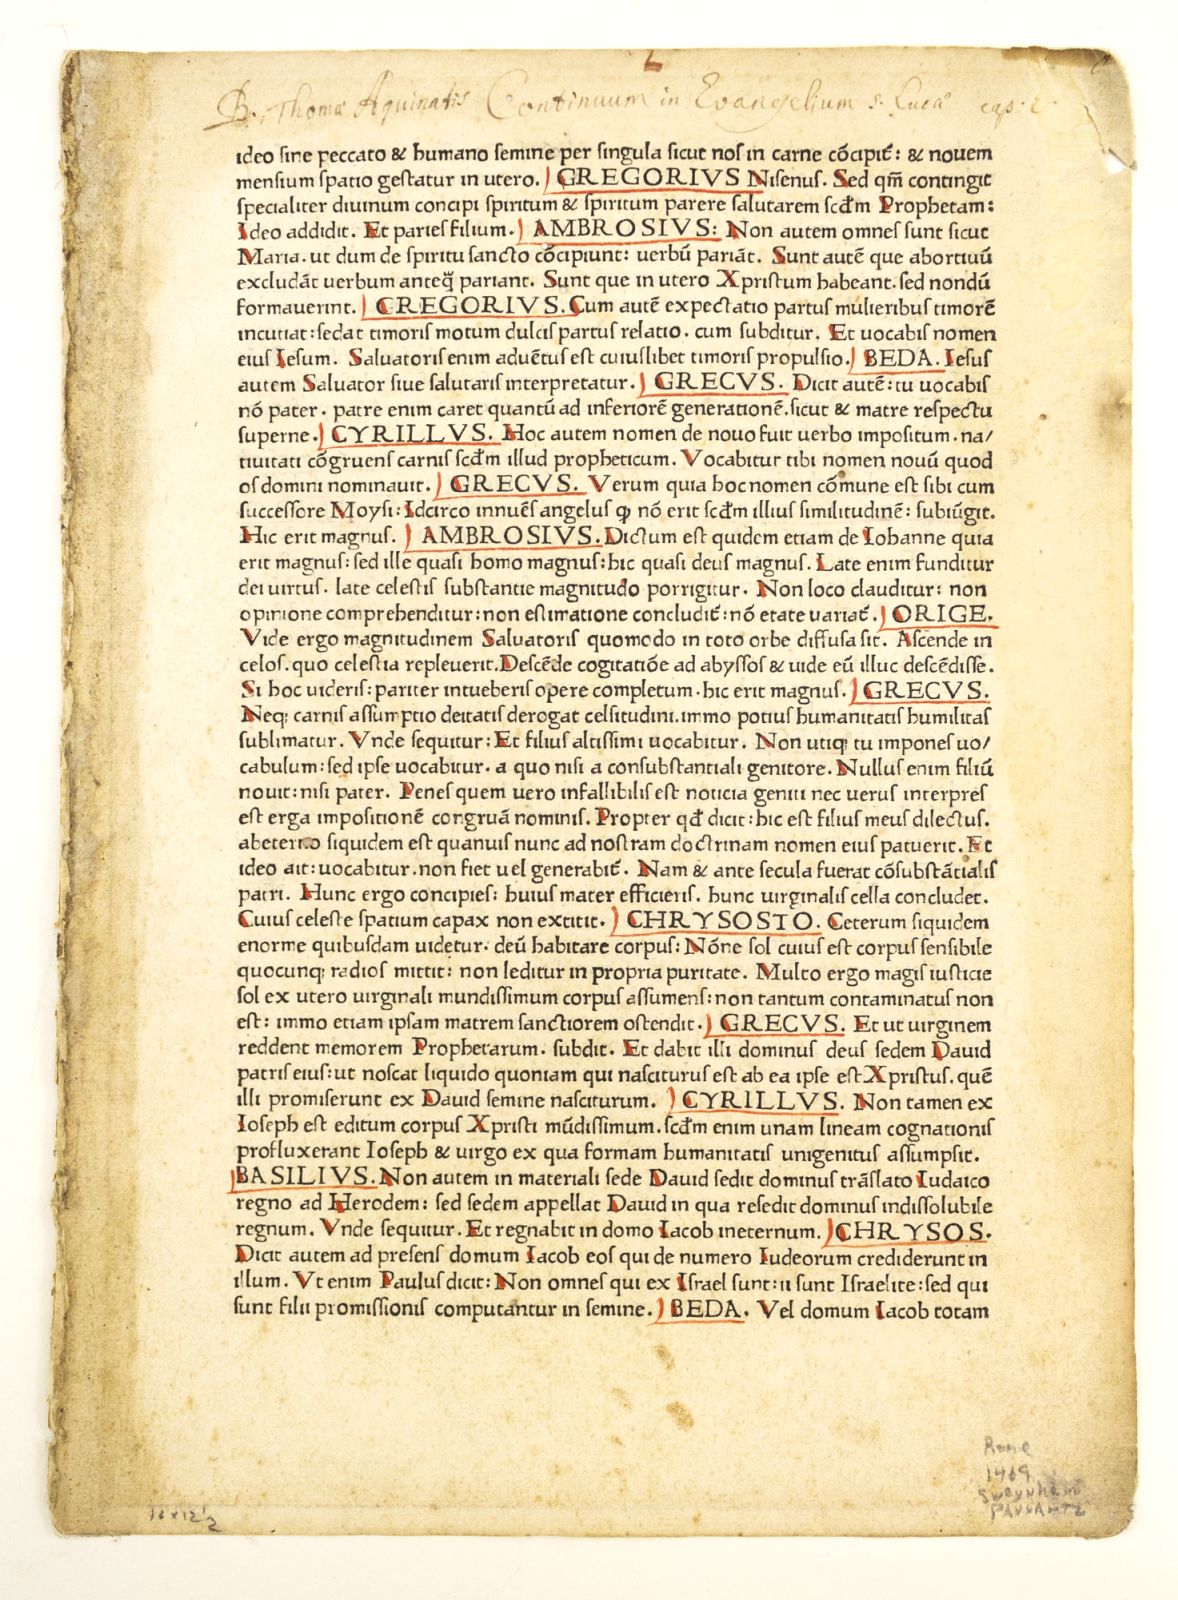 B. Thomæ Aquinatis Continuum in Evangelium s. Lucæ cap.
ideo sine peccato & humano semine per singula sicut nos in carne cōcipit̄: & nouem
mensium spatio gestatur in utero. GREGORIVS Nisenus. Sed qm̄ contingit
specialiter diuinum concipi spiritum & spiritum parere salutarem scd̄m Prophetam:
Ideo addidit. Et paries filium. AMBROSIVS: Non autem omnes sunt sicut
Maria. ut dum de spiritu sancto cōcipiunt: uerbū pariāt. Sunt autē que abortiuū
excludāt uerbum anteq̄ pariant. Sunt que in utero Xpristum habeant. sed nondū
formauerint. GREGORIVS. Cum autē expectatio partus mulieribus timorē
incutiat: sedat timoris motum dulcis partus relatio. cum subditur. Et uocabis nomen
eius Iesum. Saluatoris enim aduētus est cuiuslibet timoris propulsio. BEDA. Iesus
autem Saluator siue salutaris interpretatur. GRECVS. Dicit autē: tu uocabis
nō pater. patre enim caret quantū ad inferiorē generationē. sicut & matre respectu
superne. CYRILLVS. Hoc autem nomen de nouo fuit uerbo impositum. na/
tiuitati cōgruens carnis scd̄m illud propheticum. Vocabitur tibi nomen nouū quod
os domini nominauit. GRECVS. Verum quia hoc nomen cōmune est sibi cum
successore Moysi: Idcirco innuēs angelus ꝙ nō erit scd̄m illius similitudinē: subiūgit.
Hic erit magnus. AMBROSIVS. Dictum est quidem etiam de Iohanne quia
erit magnus: sed ille quasi homo magnus: hic quasi deus magnus. Late enim funditur
dei uirtus. late celestis substantie magnitudo porrigitur. Non loco clauditur: non
opinione comprehenditur: non estimatione concludit̄: nō etate uariat̄. ORIGE.
Vide ergo magnitudinem Saluatoris quomodo in toto orbe diffusa sit. Ascende in
celos. quo celestia repleuerit. Descēde cogitatiōe ad abyssos & uide eū illuc descēdisse.
Si hoc uideris: pariter intueberis opere completum. hic erit magnus. GRECVS.
Neq; carnis assumptio deitatis derogat celsitudini. immo potius humanitatis humilitas
sublimatur. Vnde sequitur: Et filius altissimi uocabitur. Non utiq; tu impones uo/
cabulum: sed ipse uocabitur. a quo nisi a consubstantiali genitore. Nullus enim filiū
nouit: nisi pater. Penes quem uero infallibilis est noticia geniti nec uerus interpres
est erga impositionē congruā nominis. Propter qd̄ dicit: hic est filius meus dilectus.
abeterno siquidem est quanuis nunc ad nostram doctrinam nomen eius patuerit. Et
ideo ait: uocabitur. non fiet uel generabit̄. Nam & ante secula fuerat cōsubstātialis
patri. Hunc ergo concipies: huius mater efficieris. hunc uirginalis cella concludet.
Cuius celeste spatium capax non extitit. CHRYSOSTO. Ceterum siquidem
enorme quibusdam uidetur. deū habitare corpus: Nōne sol cuius est corpus sensibile
quocunq; radios mittit: non leditur in propria puritate. Multo ergo magis iusticie
sol ex utero uirginali mundissimum corpus assumens: non tantum contaminatus non
est: immo etiam ipsam matrem sanctiorem ostendit. GRECVS. Et ut uirginem
reddent memorem Prophetarum. subdit. Et dabit illi dominus deus sedem Dauid
patris eius: ut noscat liquido quoniam qui nasciturus est ab ea ipse est Xpristus. quē
illi promiserunt ex Dauid semine nasciturum. CYRILLVS. Non tamen ex
Ioseph est editum corpus Xpristi mūdissimum. scd̄m enim unam lineam cognationis
profluxerant Ioseph & uirgo ex qua formam humanitatis unigenitus assumpsit.
BASILIVS. Non autem in materiali sede Dauid sedit dominus trāslato Iudaico
regno ad Herodem: sed sedem appellat Dauid in qua resedit dominus indissolubile
regnum. Vnde sequitur. Et regnabit in domo Iacob ineternum. CHRYSOS.
Dicit autem ad presens domum Iacob eos qui de numero Iudeorum crediderunt in
illum. Vt enim Paulus dicit: Non omnes qui ex Israel sunt: ii sunt Israelite: sed qui
sunt filii promissionis computantur in semine. BEDA. Vel domum Iacob totam
Rome
1469
Sweynheim
Pannartz